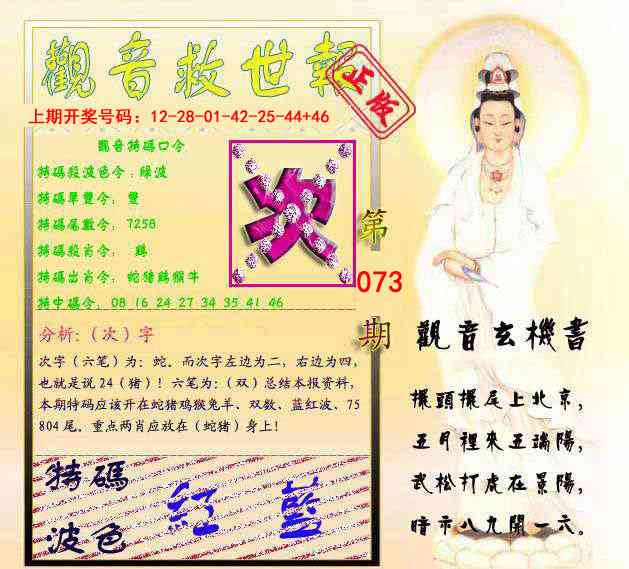 觀音救世報
正版
上期开奖号码：12-28-01-42-25-44+46
觀音特碼口令
特碼殺波色令：綠波
特碼單雙令：雙
特碼尾數令：7258
特碼殺肖令：鷄
特碼出肖令：蛇猪鷄猴牛
特中碼令：08 16 24 27 34 35 41 46
次
第
073
期
分析:（次）字
次字（六笔）为：蛇。而次字左边为二，右边为四，
也就是说24（猪）！六笔为：（双）总结本报资料，
本期特码应该开在蛇猪鸡猴兔羊、双数、蓝红波、75
804尾。重点两肖应放在（蛇猪）身上！
特碼
波色
紅 藍
觀音玄機書
擺頭擺尾上北京，
五月裡來五端陽，
武松打虎在景陽，
暗市八九開一六。